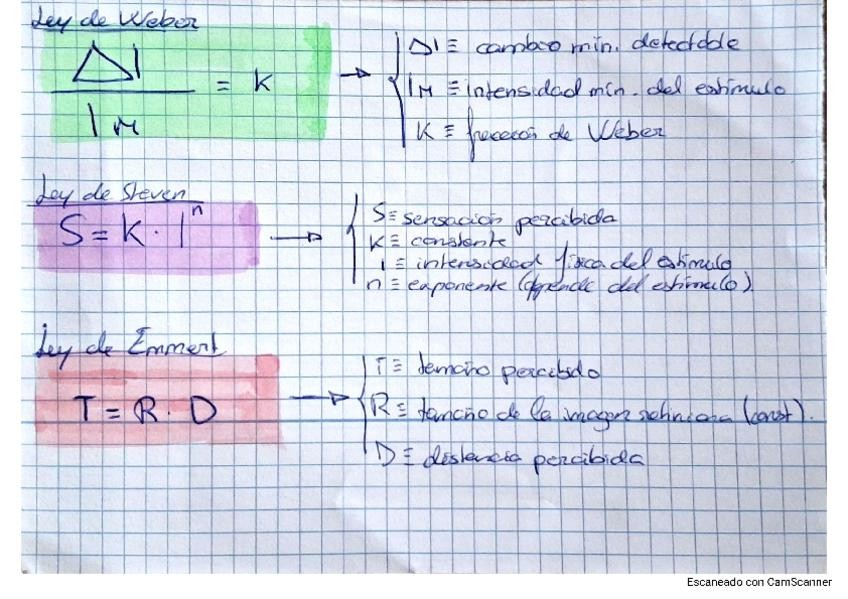 Ley de Weber
ΔI / I M = K → ΔI ≡ cambio mín. detectable
I M ≡ intensidad mín. del estímulo
K ≡ fracción de Weber
Ley de Steven
S = K · I^n → S ≡ sensación percibida
K ≡ constante
I ≡ intensidad física del estímulo
n ≡ exponente (depende del estímulo)
Ley de Emmert
T = R · D → T ≡ tamaño percibido
R ≡ tamaño de la imagen retiniana (const).
D ≡ distancia percibida
Escaneado con CamScanner